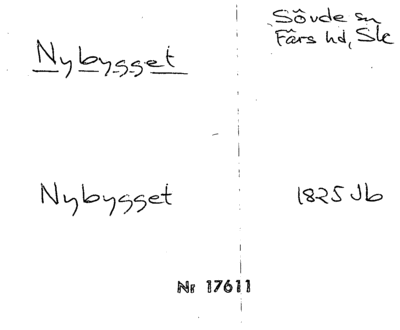 Nybygget
Sövde sn
Färs hd, Sk
Nybygget
1825 Jb
Nr 17611